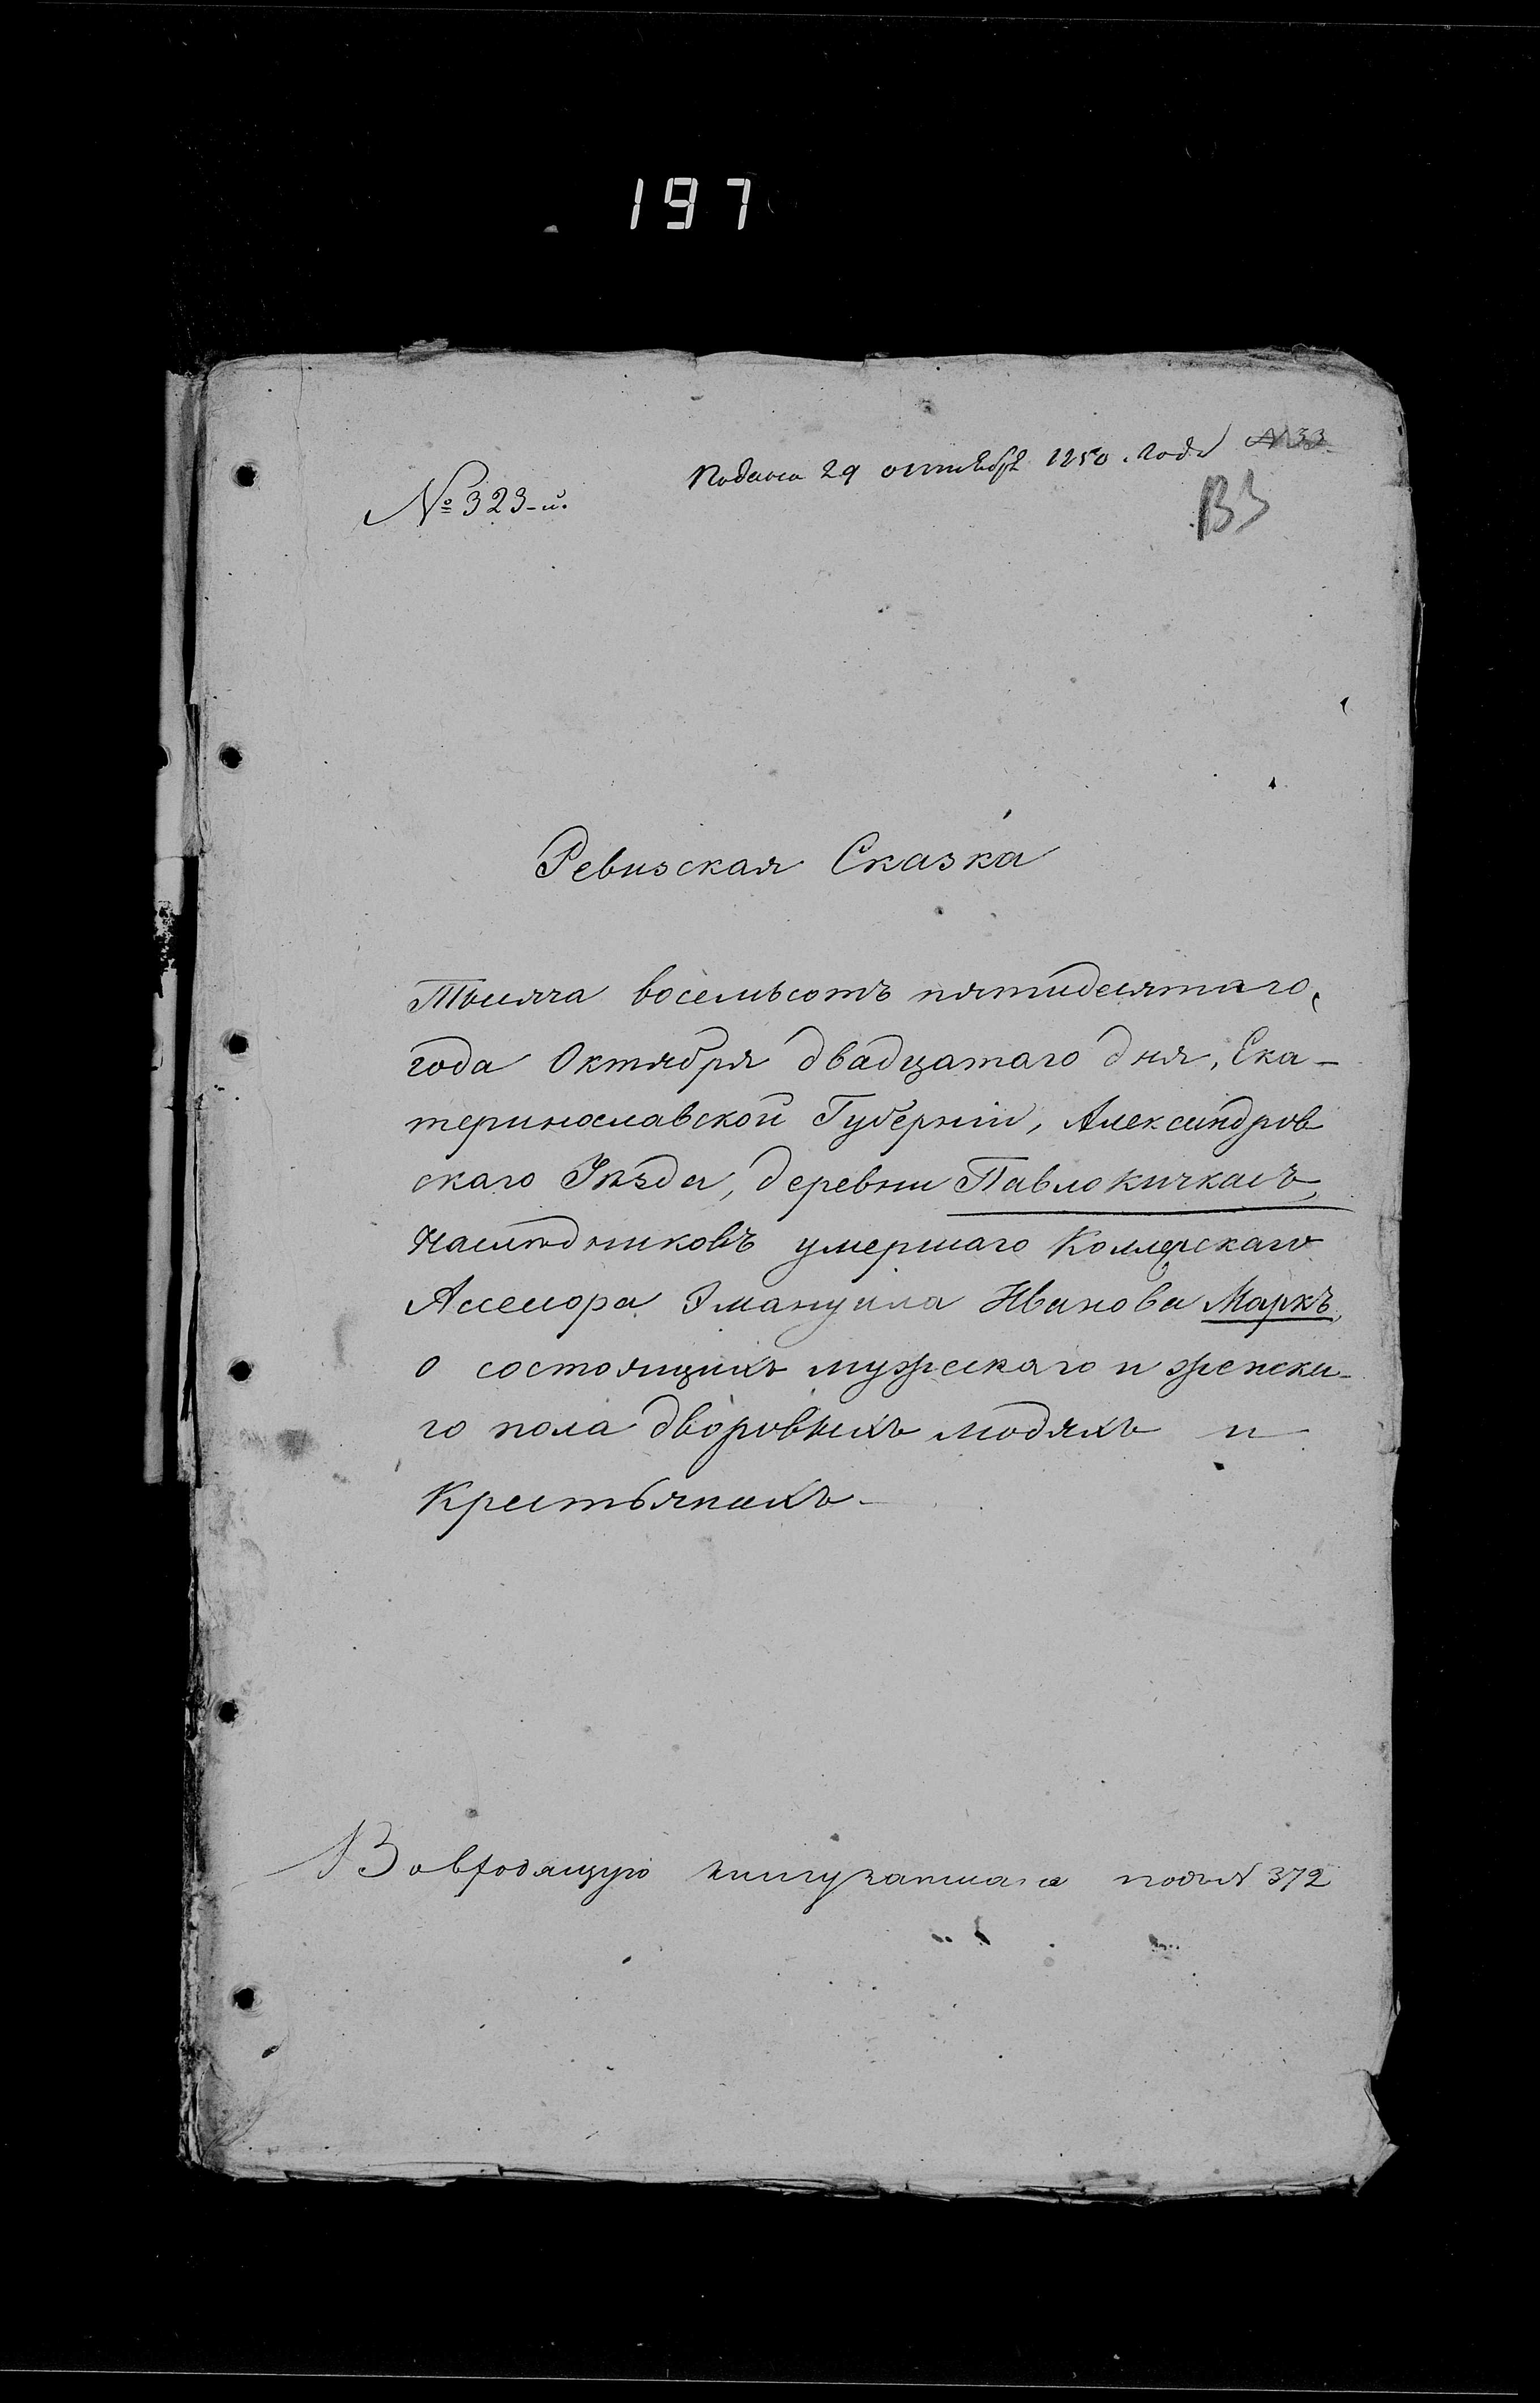 197
Подана 29 октября 1850 года №33
№ 323-й.
Ревизская Сказка
Тысяча восемьсотъ пятидесятаго,
года Октября двадцатаго дня, Ека-
теринославской Губерніи, Александров
скаго Уѣзда, деревни Павлокичкасъ,
Наслѣдниковъ умершаго Коллежскаго
Ассесора Эмануила Иванова Маркъ,
о состоящихъ мужескаго и женска-
го пола дворовыхъ людяхъ и
Крестьянахъ
Во входящую книгу записана подъ № 372